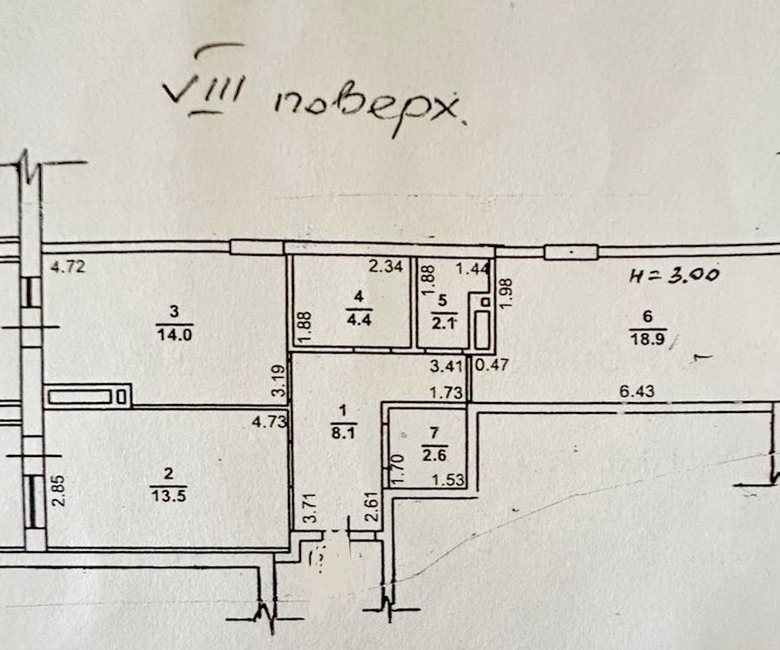 VIII поверх.
4.72
2.34
1.88
1.44
H = 3.00
3
14.0
4
4.4
1.88
5
2.1
1.98
6
18.9
3.19
3.41
0.47
1.73
6.43
4.73
1
8.1
7
2.6
2
13.5
2.85
1.70
1.53
3.71
2.61